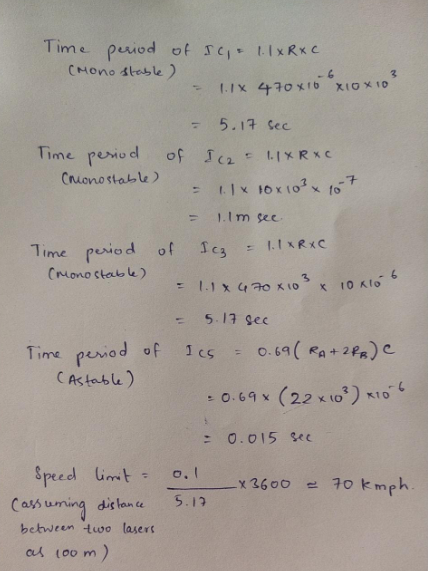 Time period of IC1 = 1.1xRxC
(Mono stable)
= 1.1x 470x10⁻⁶ x10x10³
= 5.17 sec
Time period of IC2 = 1.1xRxC
(Monostable)
= 1.1x 10x10³x 10⁻⁷
= 1.1m sec.
Time period of IC3 = 1.1xRxC
(Monostable)
= 1.1x 470x10³ x 10x10⁻⁶
= 5.17 sec
Time period of IC5 = 0.69(RA+2RB)C
(Astable)
= 0.69x (22x10³)x10⁻⁶
= 0.015 sec
Speed limit = 0.1/5.17 x3600 ≃ 70 kmph.
(assuming distance
between two lasers
as 100m)